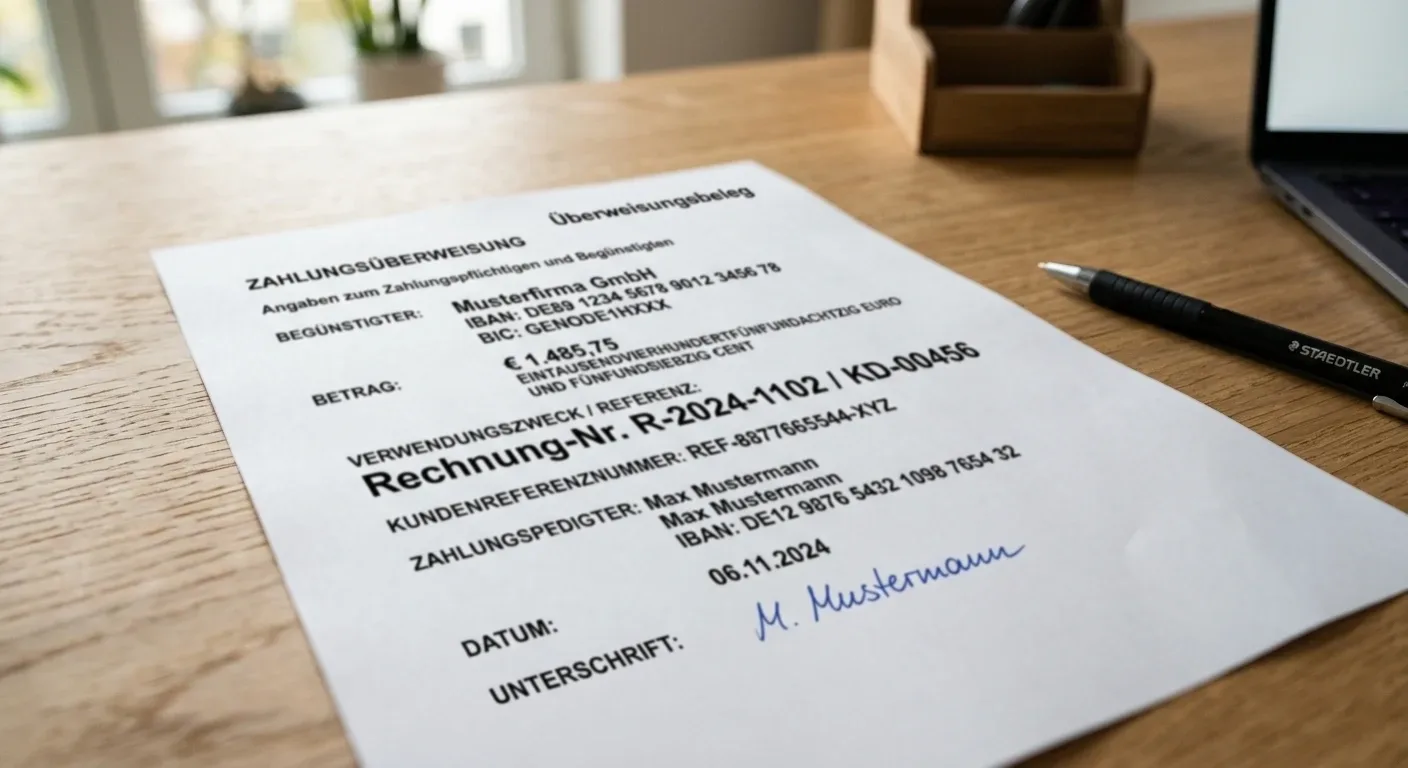 Überweisungsbeleg
ZAHLUNGSÜBERWEISUNG
Angaben zum Zahlungspflichtigen und Begünstigten
BEGÜNSTIGTER: Musterfirma GmbH
IBAN: DE89 1234 5678 9012 3456 78
BIC: GENODE1HXXX
BETRAG: € 1.485,75
EINTAUSENDVIERHUNDERTFÜNFUNDACHTZIG EURO
UND FÜNFUNDSIEBZIG CENT
VERWENDUNGSZWECK / REFERENZ:
Rechnung-Nr. R-2024-1102 / KD-00456
KUNDENREFERENZNUMMER: REF-8877665544-XYZ
ZAHLUNGSPEDIGTER: Max Mustermann
Max Mustermann
IBAN: DE12 9876 5432 1098 7654 32
DATUM: 06.11.2024
UNTERSCHRIFT: M. Mustermann
STAEDTLER